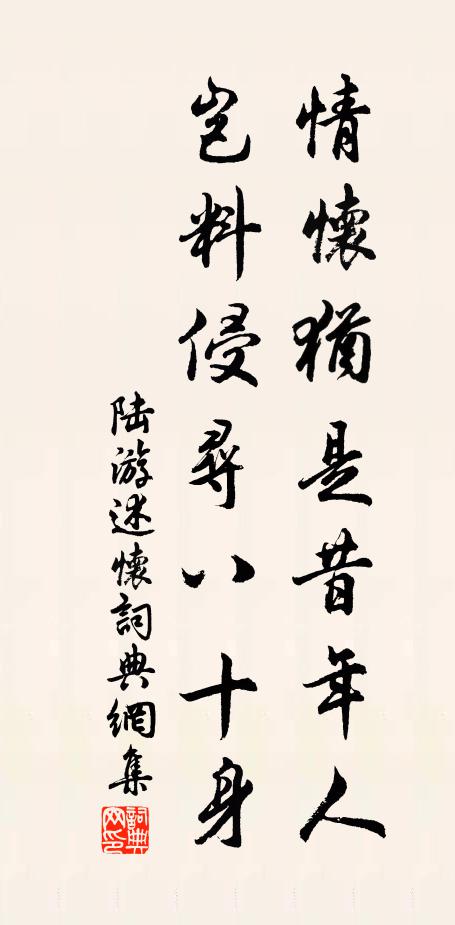 情懷猶是昔年人
豈料侵尋八十身
陸游述懷詞典網集
詞典網印